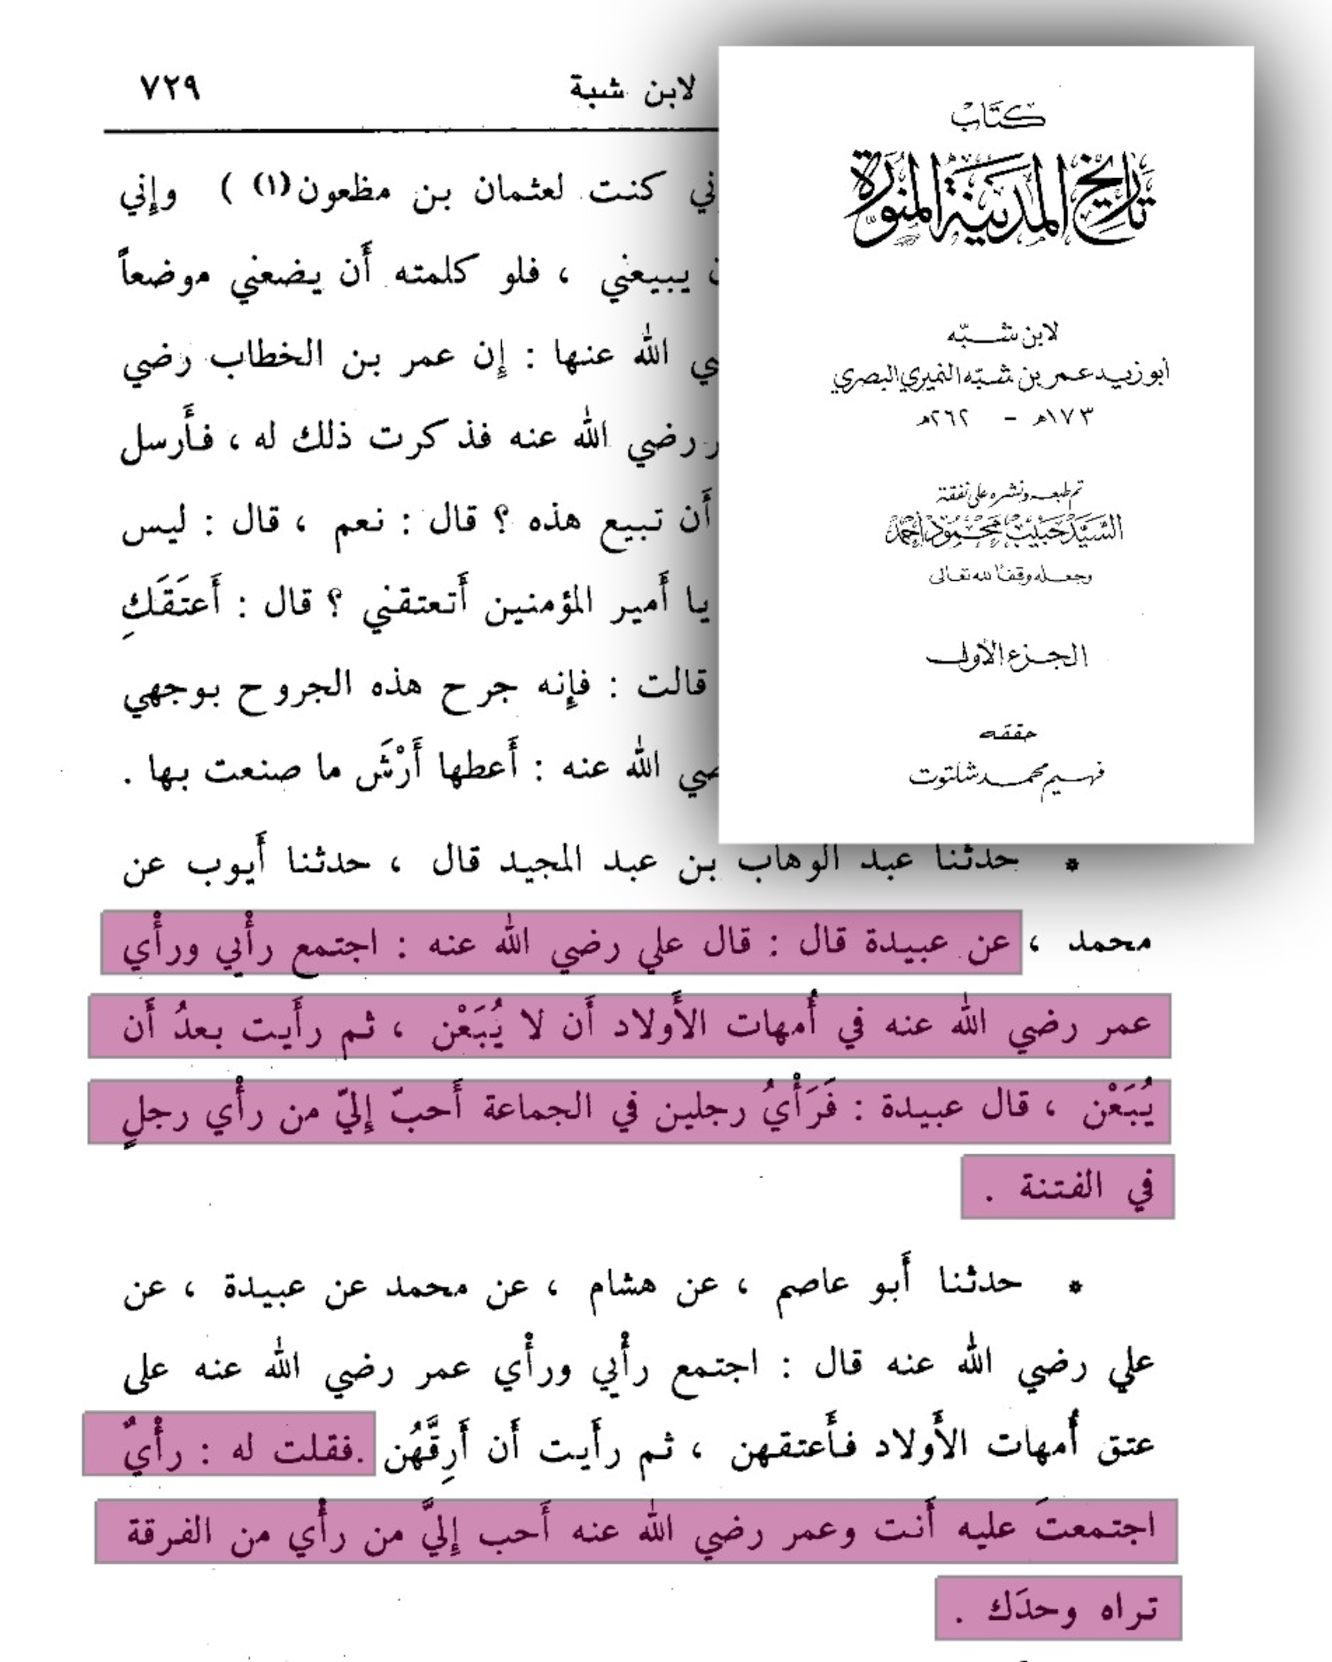 لابن شبة
٧٢٩
كنت لعثمان بن مظعون (١) ) وإني
يبيعني ، فلو كلمته أَن يضعني موضعاً
الله عنها : إِن عمر بن الخطاب رضي
رضي الله عنه فذكرت ذلك له ، فأَرسل
أَن تبيع هذه ؟ قال : نعم ، قال : ليس
يا أَمير المؤمنين أَتعتقني ؟ قال : أَعتَقَكِ
قالت : فإِنه جرح هذه الجروح بوجهي
الله عنه : أَعطها أَرْشَ ما صنعت بها .
* حدثنا عبد الوهاب بن عبد المجيد قال ، حدثنا أَيوب عن
محمد ، عن عبيدة قال : قال علي رضي الله عنه : اجتمع رأْبي ورأْي
عمر رضي الله عنه في أُمهات الأَولاد أَن لا يُبَعْن ، ثم رأَيت بعدُ أَن
يُبَعْن ، قال عبيدة : فَرَأْيُ رجلين في الجماعة أَحبّ إِليّ من رأْي رجلٍ
في الفتنة .
* حدثنا أَبو عاصم ، عن هشام ، عن محمد عن عبيدة ، عن
علي رضي الله عنه قال : اجتمع رأْبي ورأْي عمر رضي الله عنه على
عتق أُمهات الأَولاد فأَعتقهن ، ثم رأَيت أَن أَرِقَّهُن .فقلت له : رأْيٌ
اجتمعتَ عليه أَنت وعمر رضي الله عنه أَحب إِليَّ من رأْي من الفرقة
تراه وحدَك .
كتاب
تاريخ المدينة المنورة
لابن شبّه
ابو زيد عمر بن شبّه النميري البصري
١٧٣هـ - ٢٦٢هـ
تم طبعه ونشره على نفقة
السيد حبيب محمود أحمد
وجعله وقفاً لله تعالى
الجزء الأول
حققه
فهيم محمد شلتوت